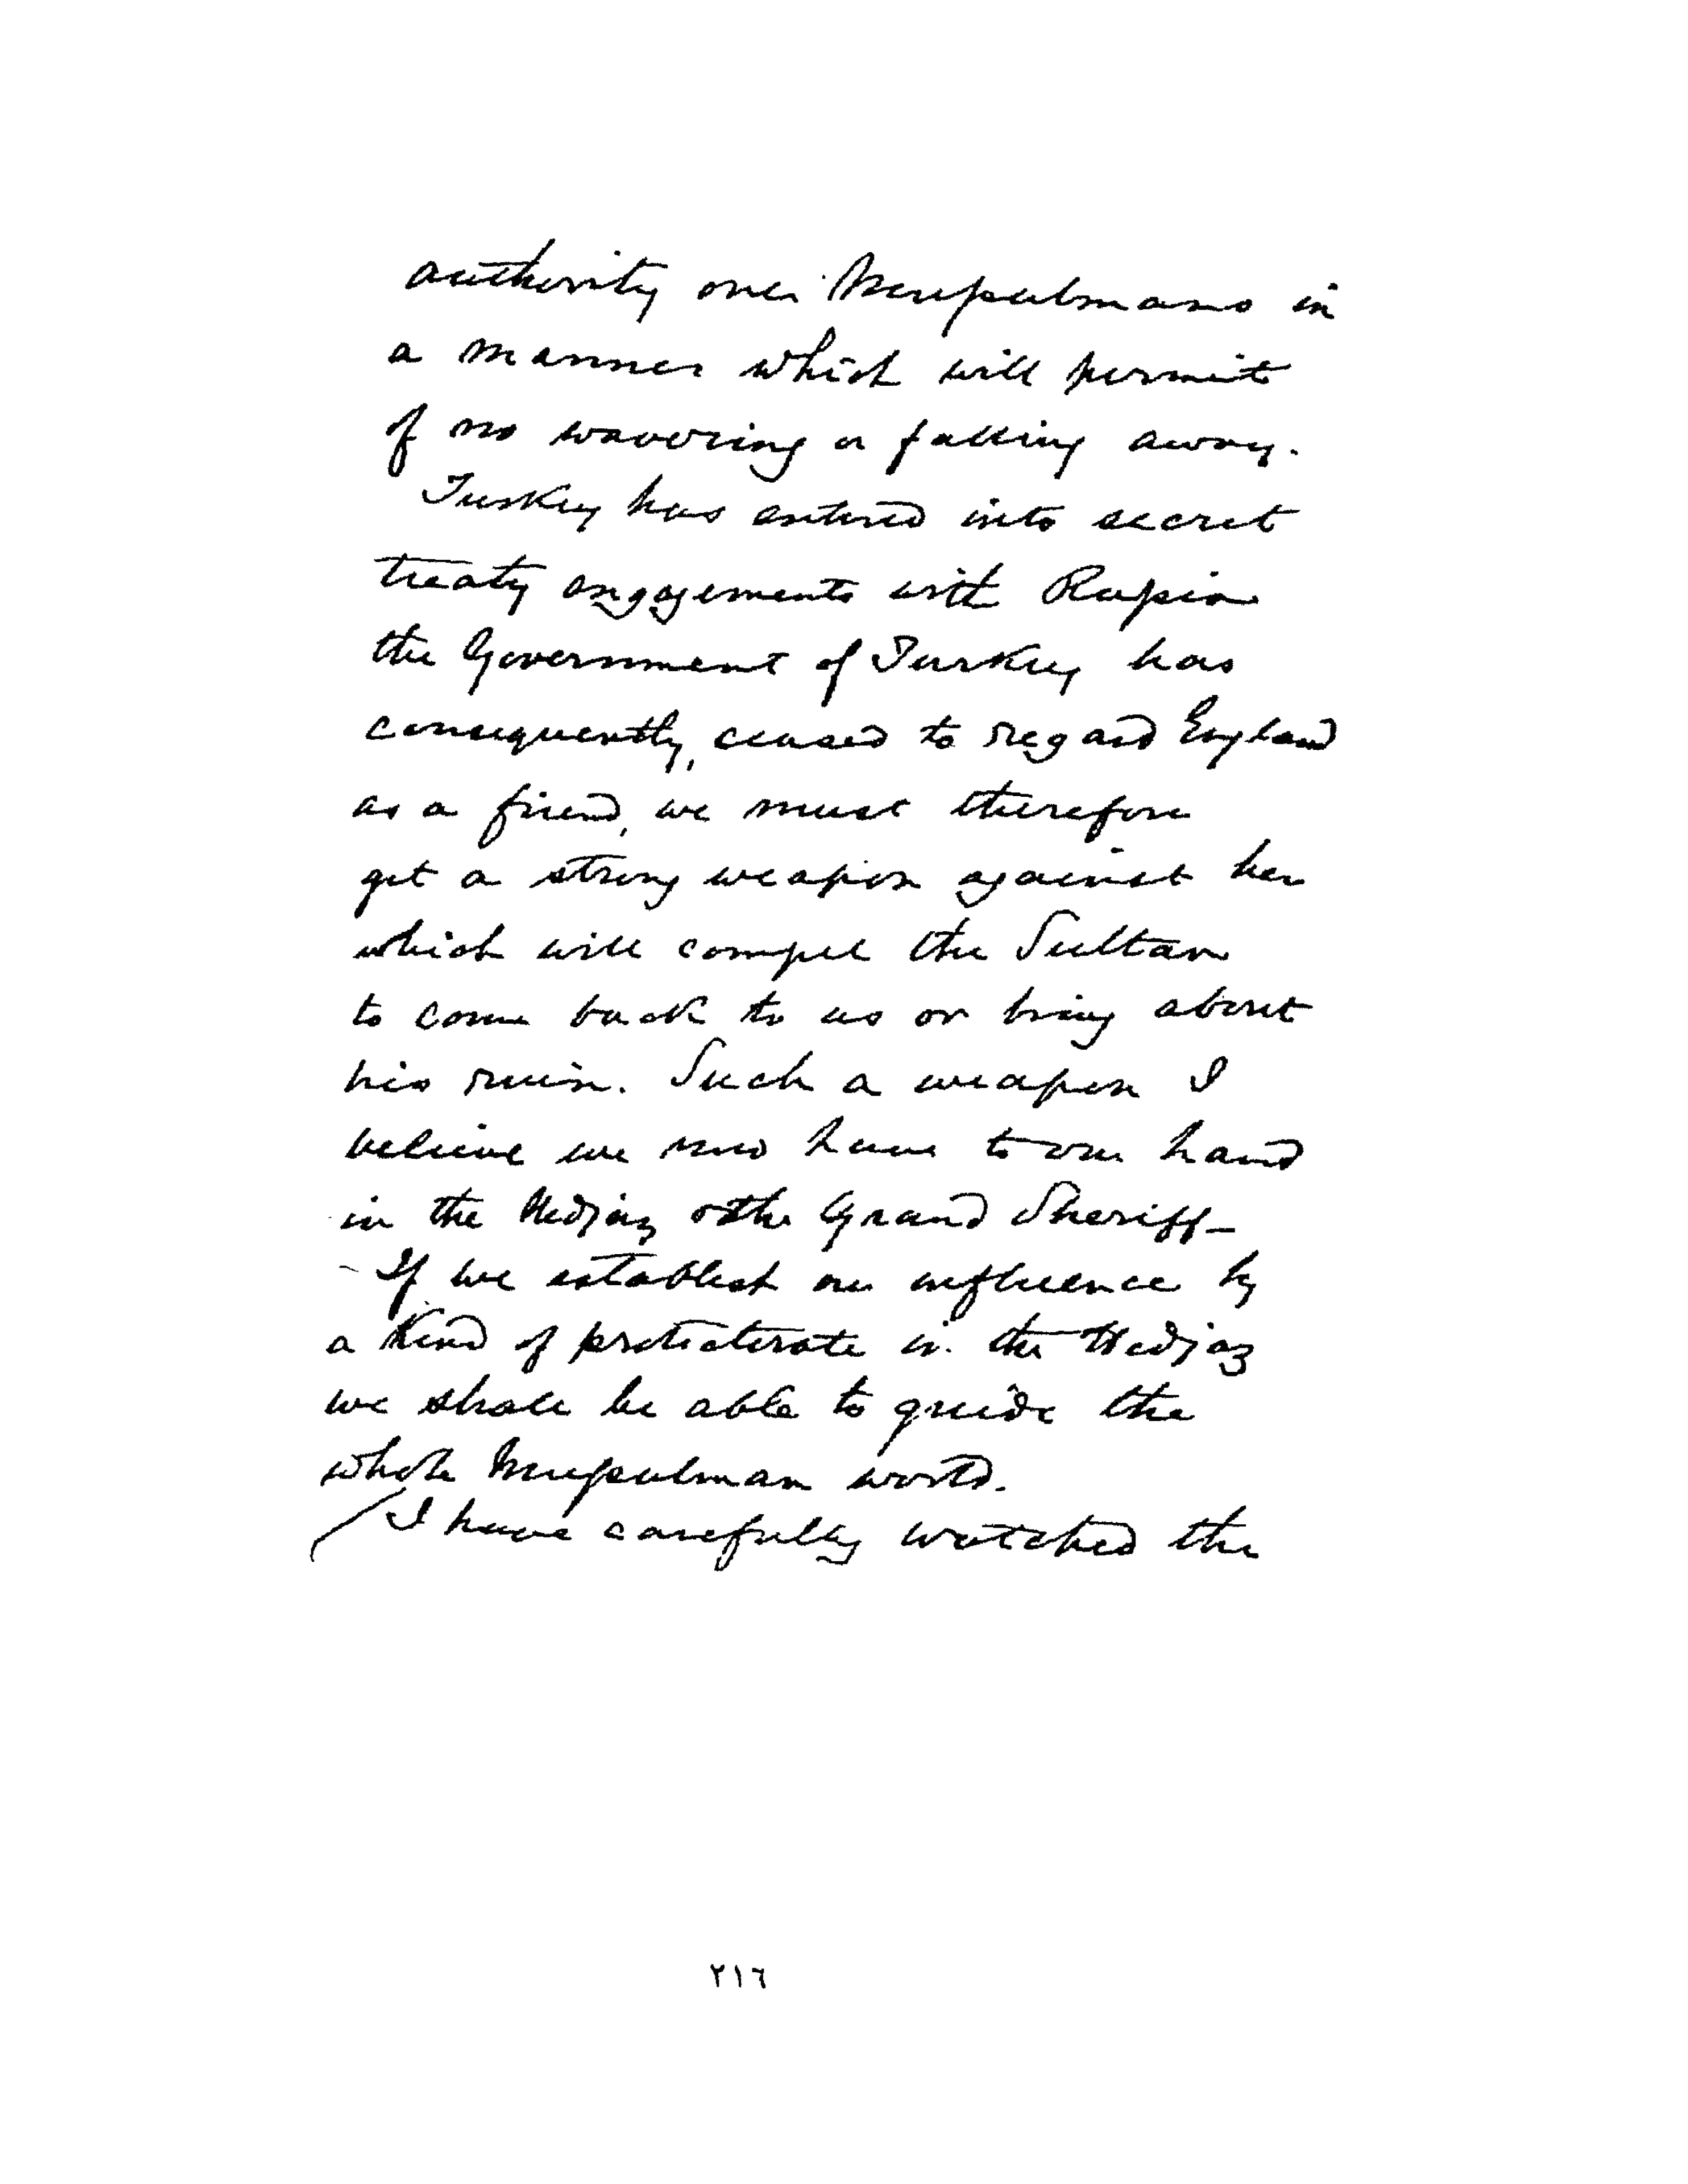 authority over Mussulmans in
a manner which will permit
of no wavering or falling away.
Turkey has entered into secret
treaty engagements with Russia
the Government of Turkey has
consequently, ceased to regard England
as a friend, we must therefore
get a strong weapon against her
which will compel the Sultan
to come back to us or bring about
his ruin. Such a weapon I
believe we now have to our hand
in the Hedjaz & the Grand Sheriff -
- If we establish our influence by
a Kind of protectorate in the Hedjaz
we shall be able to guide the
whole Mussulman world.
I have carefully watched the
٢١٦